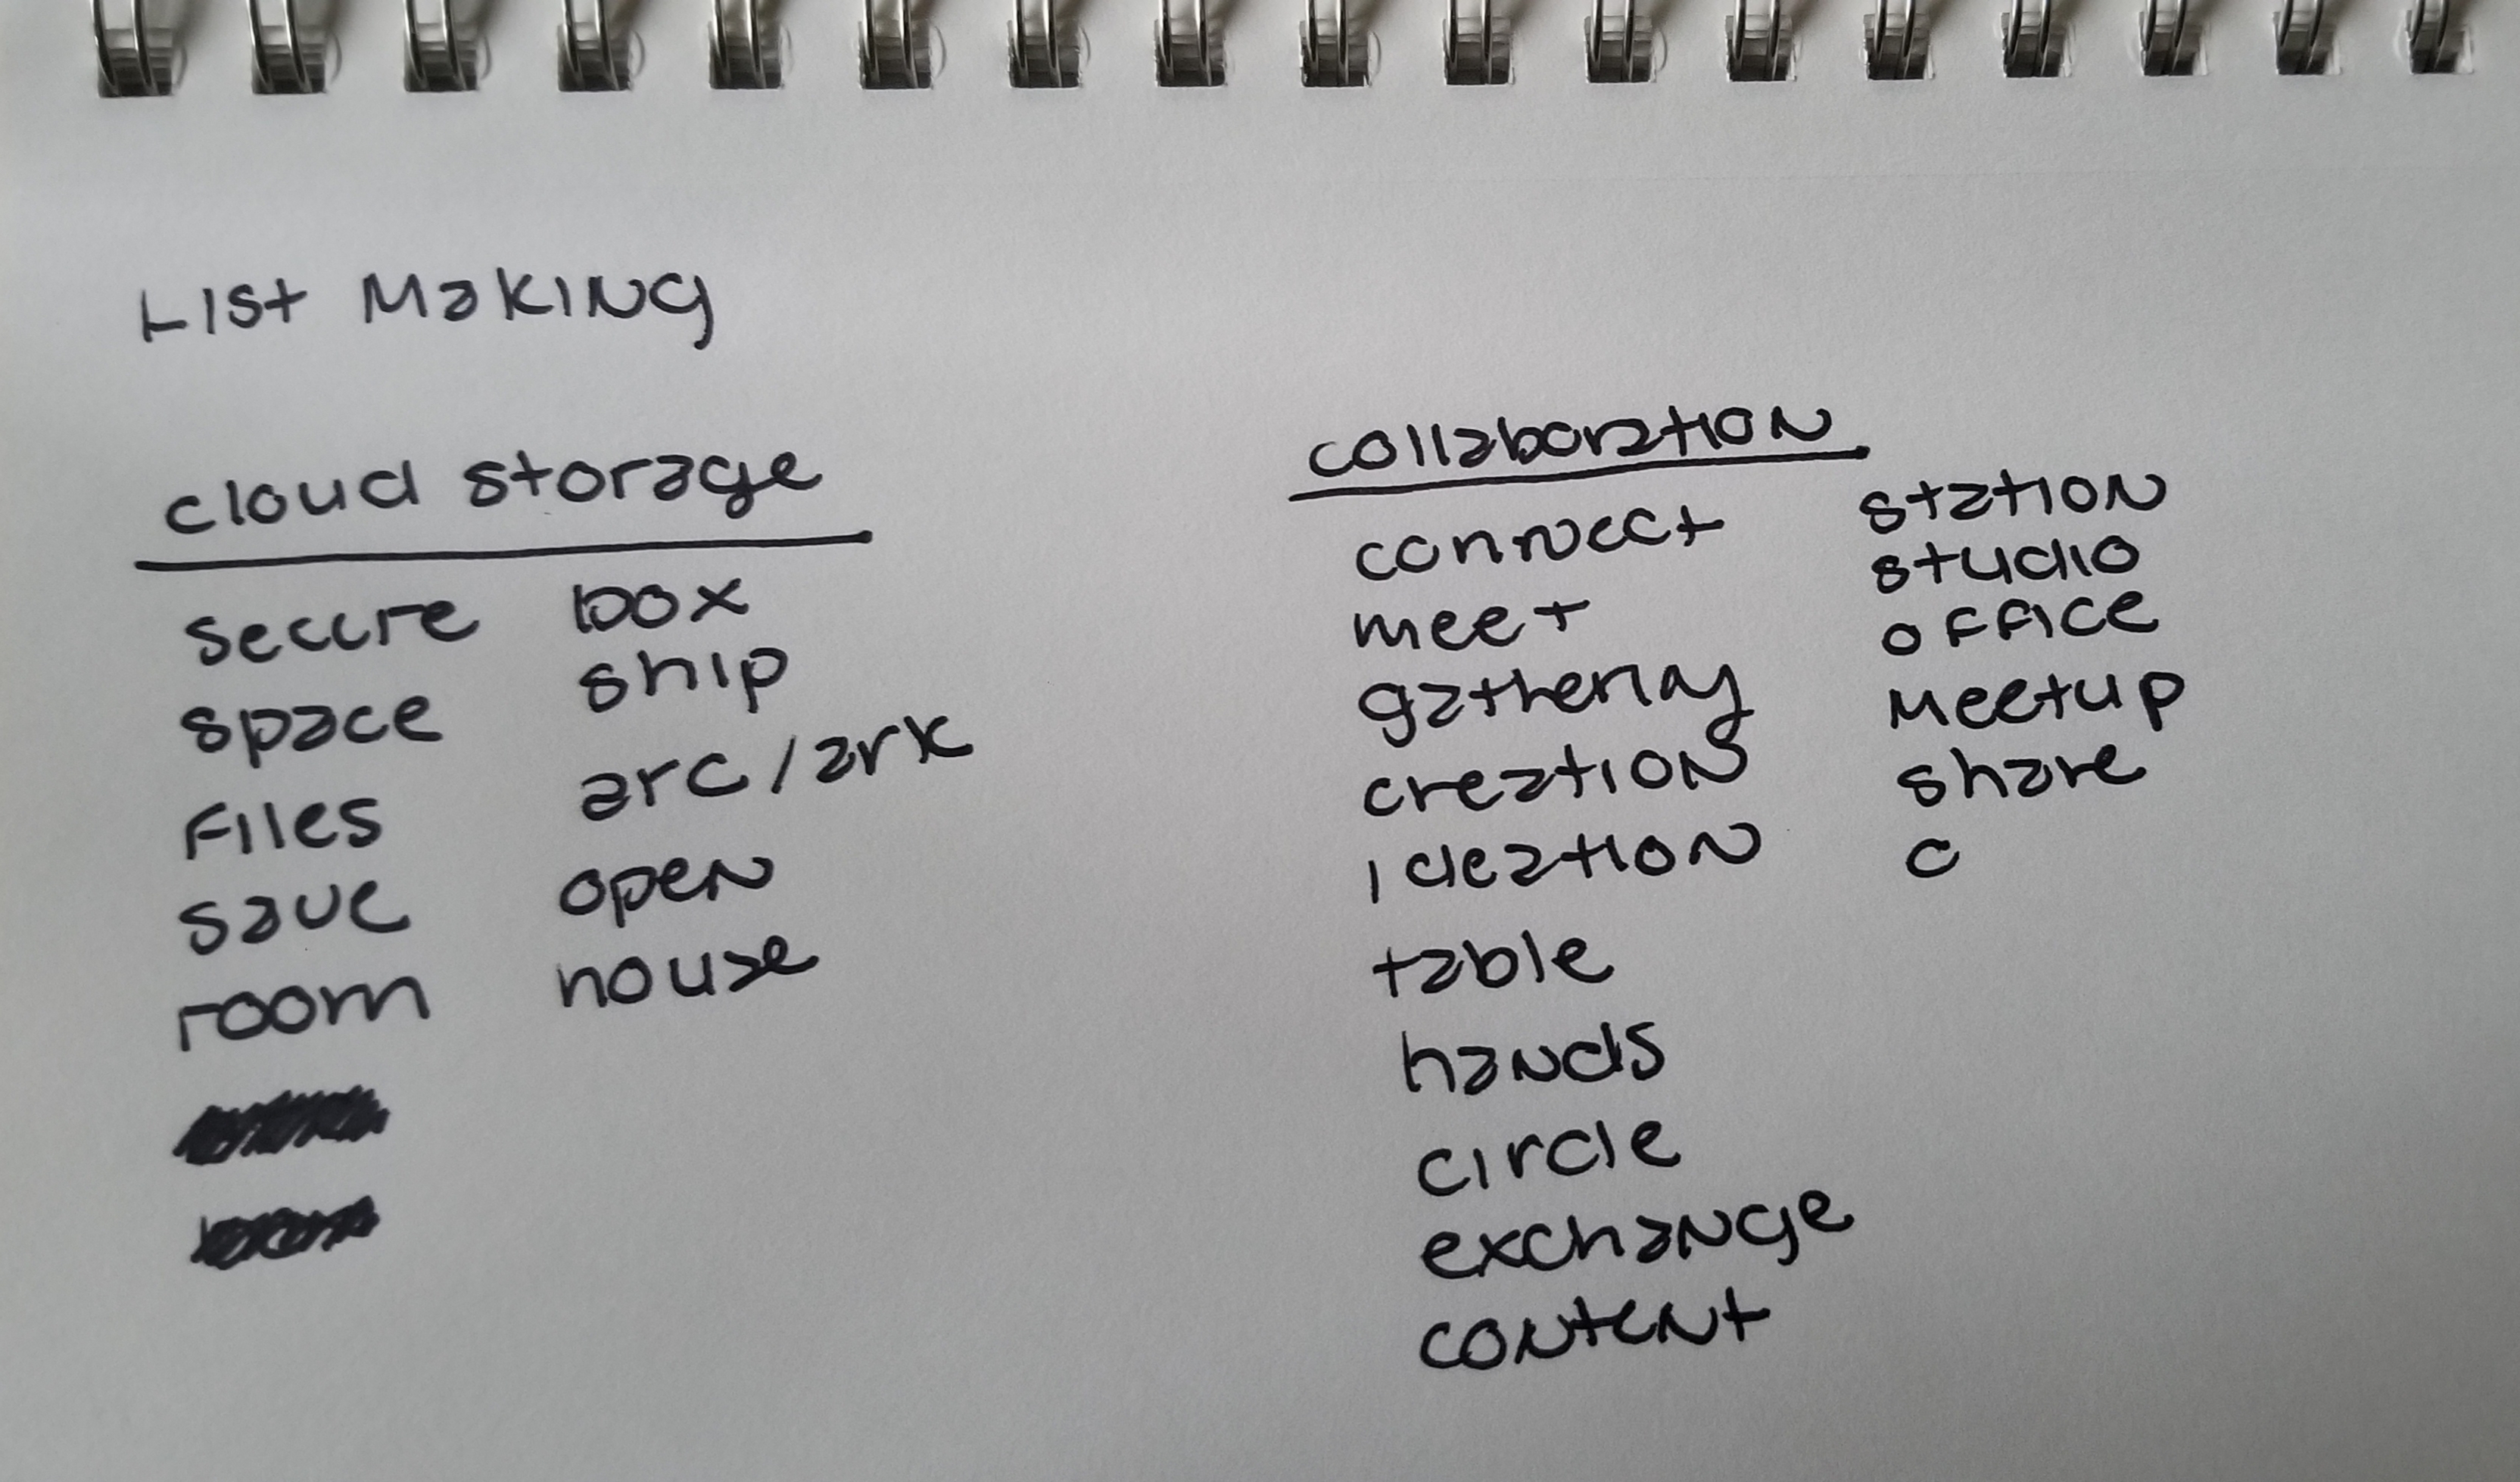 List Making
cloud storage
secure
space
Files
save
room
box
ship
arc/ark
open
house
collaboration
connect
meet
gathering
creation
ideation
table
hands
circle
exchange
content
station
studio
office
Meetup
share
c